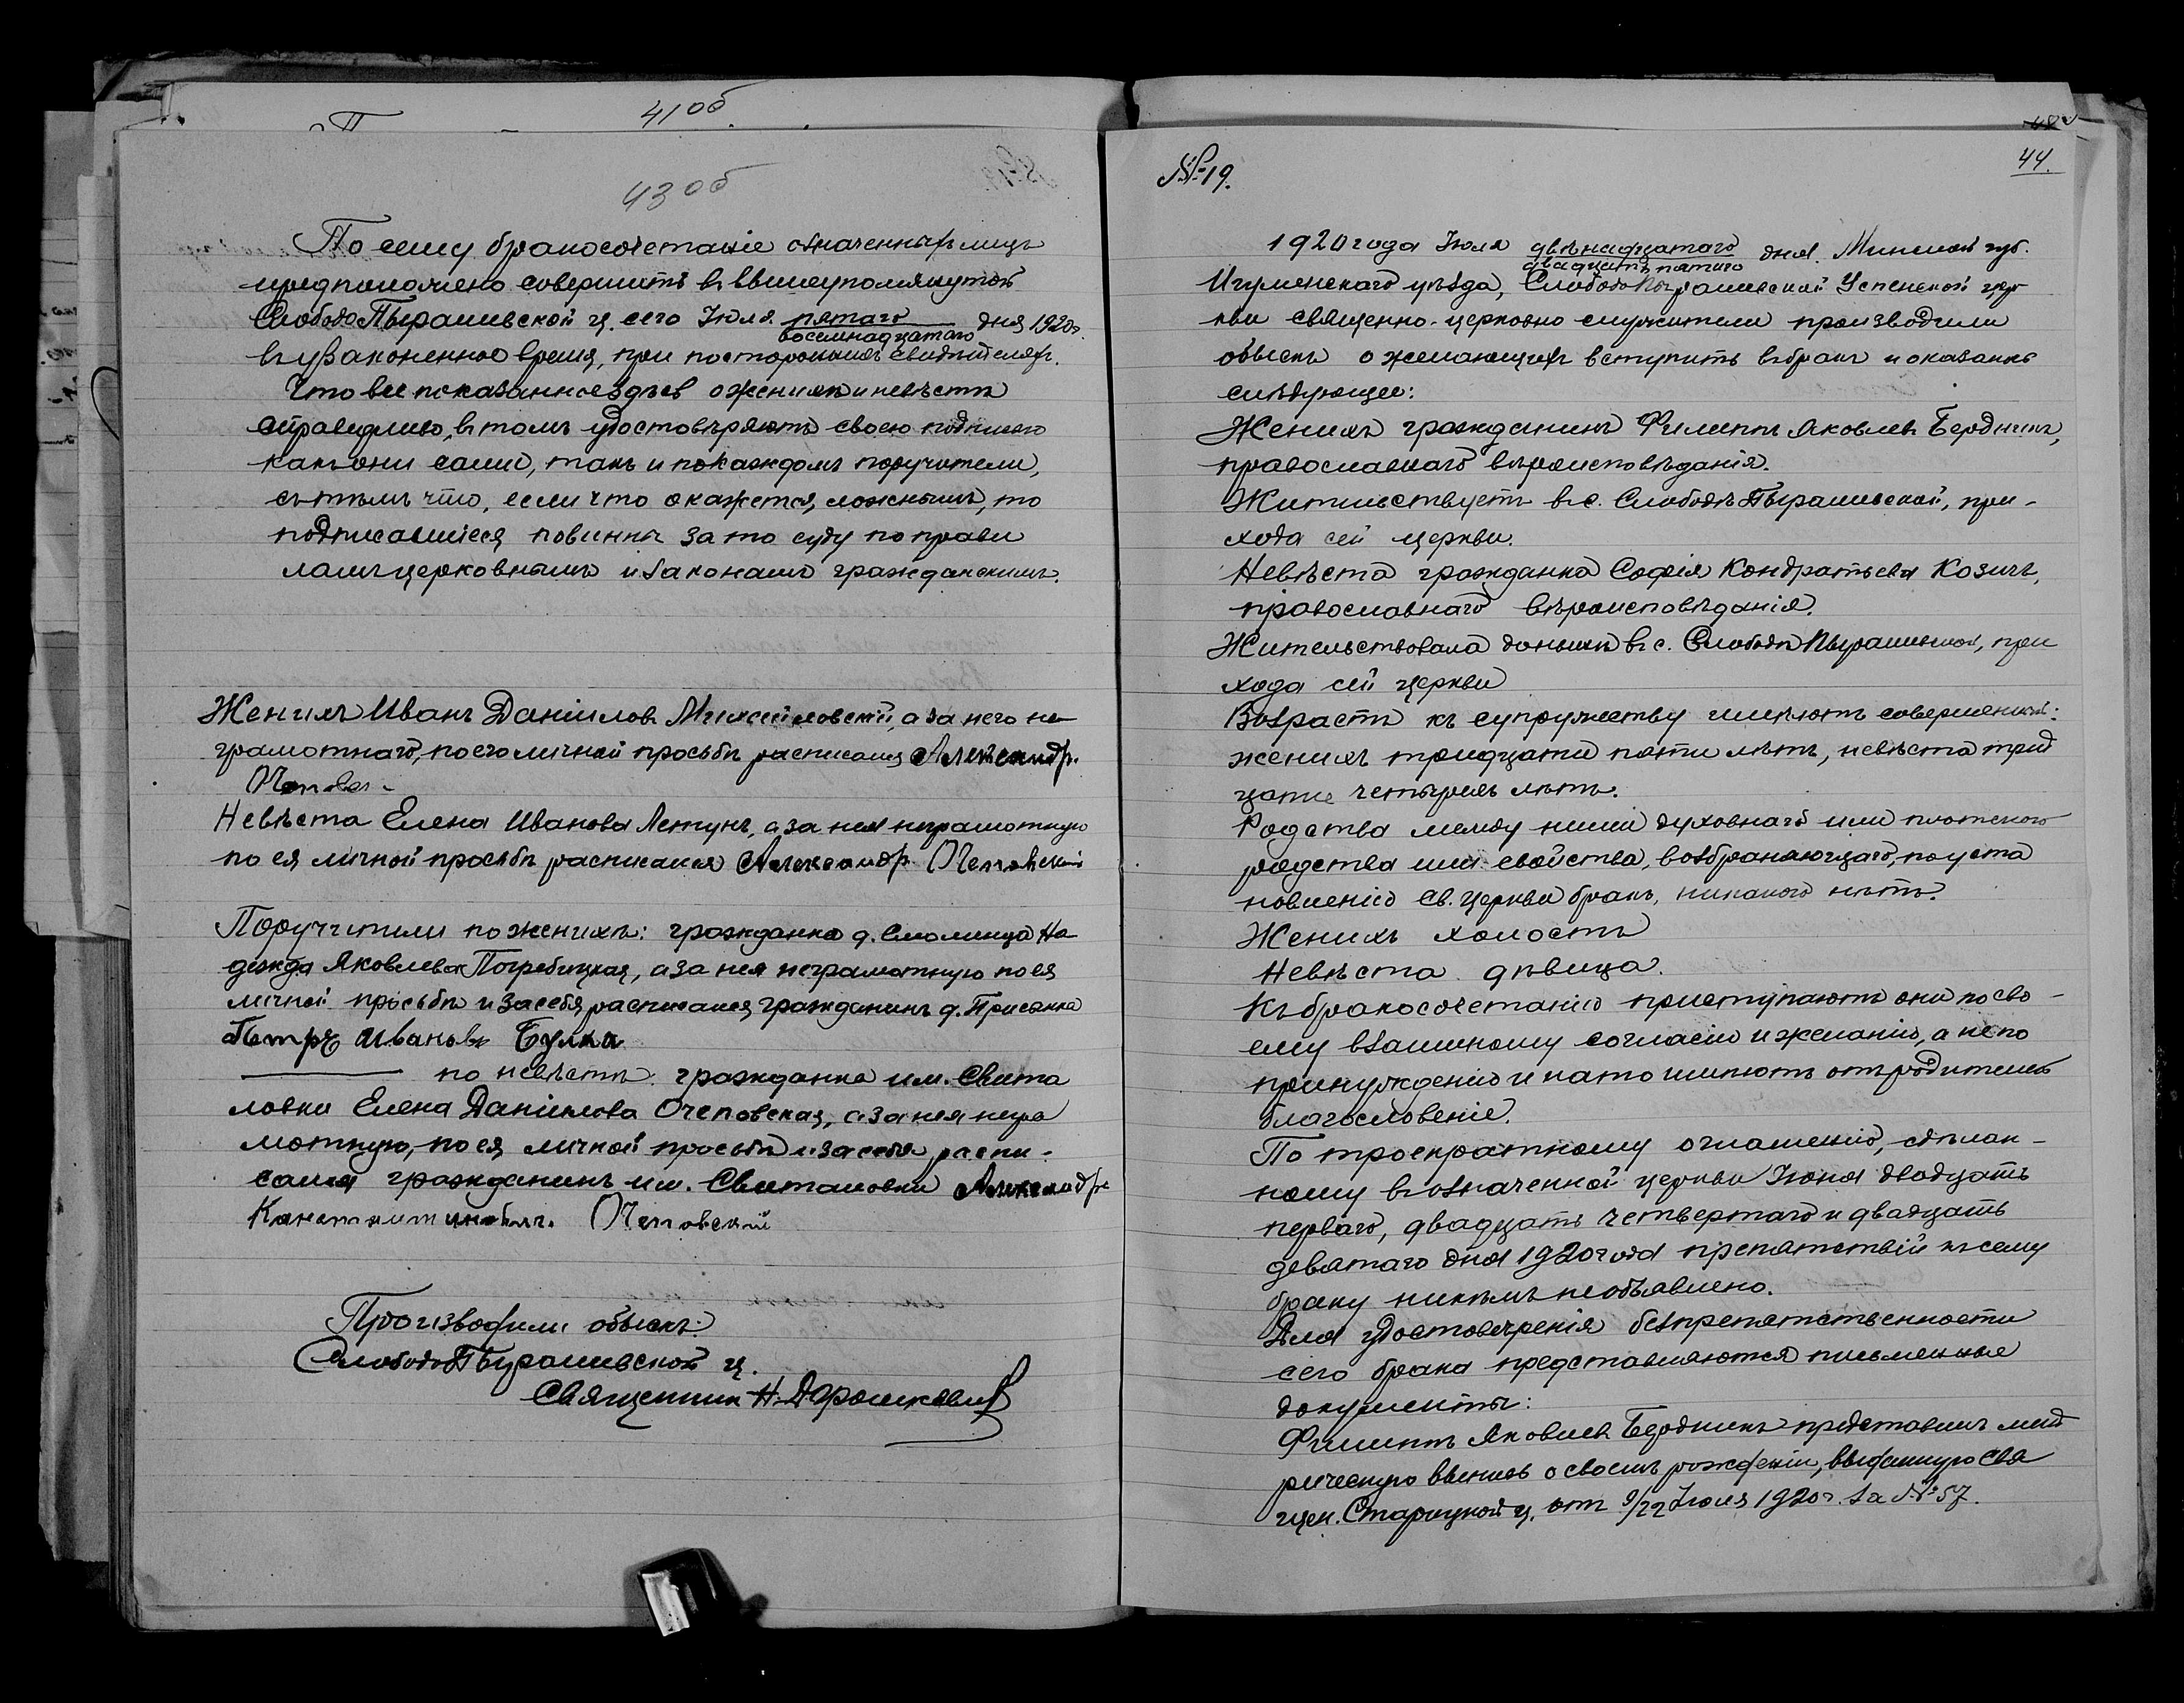 41 об
43 об
По сему бракосочетаніе означенныхъ лицъ
предположено совершить въ вышеупомянутой
СлободоПырашевской ц. сего Іюля пятаго дня 1920г.
восемнадцатаго
въ узаконенное время, при постороннихъ свидѣтеляхъ.
Что все показанное здѣсь о женихѣ и невѣстѣ
справедливо, въ томъ удостовѣряютъ своею подписью
какъ они сами, такъ и по каждомъ поручители,
съ тѣмъ что, если что окажется ложнымъ, то
подписавшіеся повинны за то суду по прави
ламъ церковнымъ и законамъ гражданскимъ.
Женихъ Иванъ Даніиловъ а за него не
грамотнаго, по его личной просьбѣ расписался Александр.
Невѣста Елена Иванова Летунъ, а за нея неграмотную
по ея личной просьбѣ расписался Александр. Очеповскій
Поручители по женихѣ: гражданка д. Смолинца На
дежда Яковлева Погребицкая, а за нея неграмотную по ея
личной просьбѣ и за себя расписался гражданинъ д. Присынка
Петръ Ивановъ Булка
по невѣстѣ: гражданка им. Свита
ловки Елена Даніилова Очеповская, а за нея негра
мотную, по ея личной просьбѣ и за себя распи-
сался гражданинъ им. Свиталовки Александръ
Константиновичъ. Очеповскій
Производили обыскъ:
СлободоПырашевской ц.
Священник Н. Дорошкевич
48
44.
№ 19.
1920 года Іюля двѣнадцатаго дня. Минской губ.
двадцать пятаго
Игуменскаго уѣзда, СлободоПырашевской Успенской цер
кви священно-церковно служители производили
обыскъ о желающихъ вступить въ бракъ и оказалось
слѣдующее:
Женихъ гражданинъ Филиппъ Яковлевъ Бердникъ,
православнаго вѣроисповѣданія.
Жительствуетъ въ с. Слободѣ Пырашевской, при-
хода сей церкви.
Невѣста гражданка Софія Кондратьева Козичъ,
православнаго вѣроисповѣданія.
Жительствовала донынѣ въ с. Слободѣ Пырашевской, при
хода сей церкви
Возрастъ къ супружеству имѣютъ совершенный:
женихъ тридцати пяти лѣтъ, невѣста трид
цати четырехъ лѣтъ.
Родства между ними духовнаго или плотского
родства или свойства, возбраняющаго, по уста
новленію св. церкви бракъ, никакого нѣтъ.
Женихъ холостъ
Невѣста дѣвица.
Къ бракосочетанію приступаютъ они по сво-
ему взаимному согласію и желанію, а не по
принужденію и на то имѣютъ отъ родителей
благословеніе.
По троекратному оглашенію, сдѣлан-
ному въ означенной церкви Іюня двадцать
перваго, двадцать четвертаго и двадцать
девятаго дня 1920 года препятствій къ сему
браку никѣмъ не объявлено.
Для удостовѣренія безпрепятственности
сего брака представляются письменные
документы:
Филиппъ Яковлевъ Бердникъ представилъ мет
рическую выпись о своемъ рожденіи, выданную свя
щен. Старицкой ц. отъ 9/22 Іюля 1920 г. за № 57.